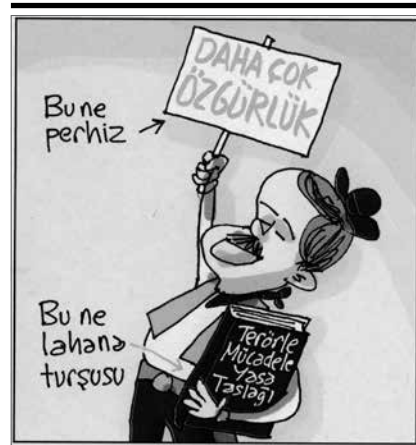 DAHA ÇOK
ÖZGÜRLÜK
Bu ne
perhiz
Bu ne
lahana
turşusu
Terörle
Mücadele
Yasa
Taslağı